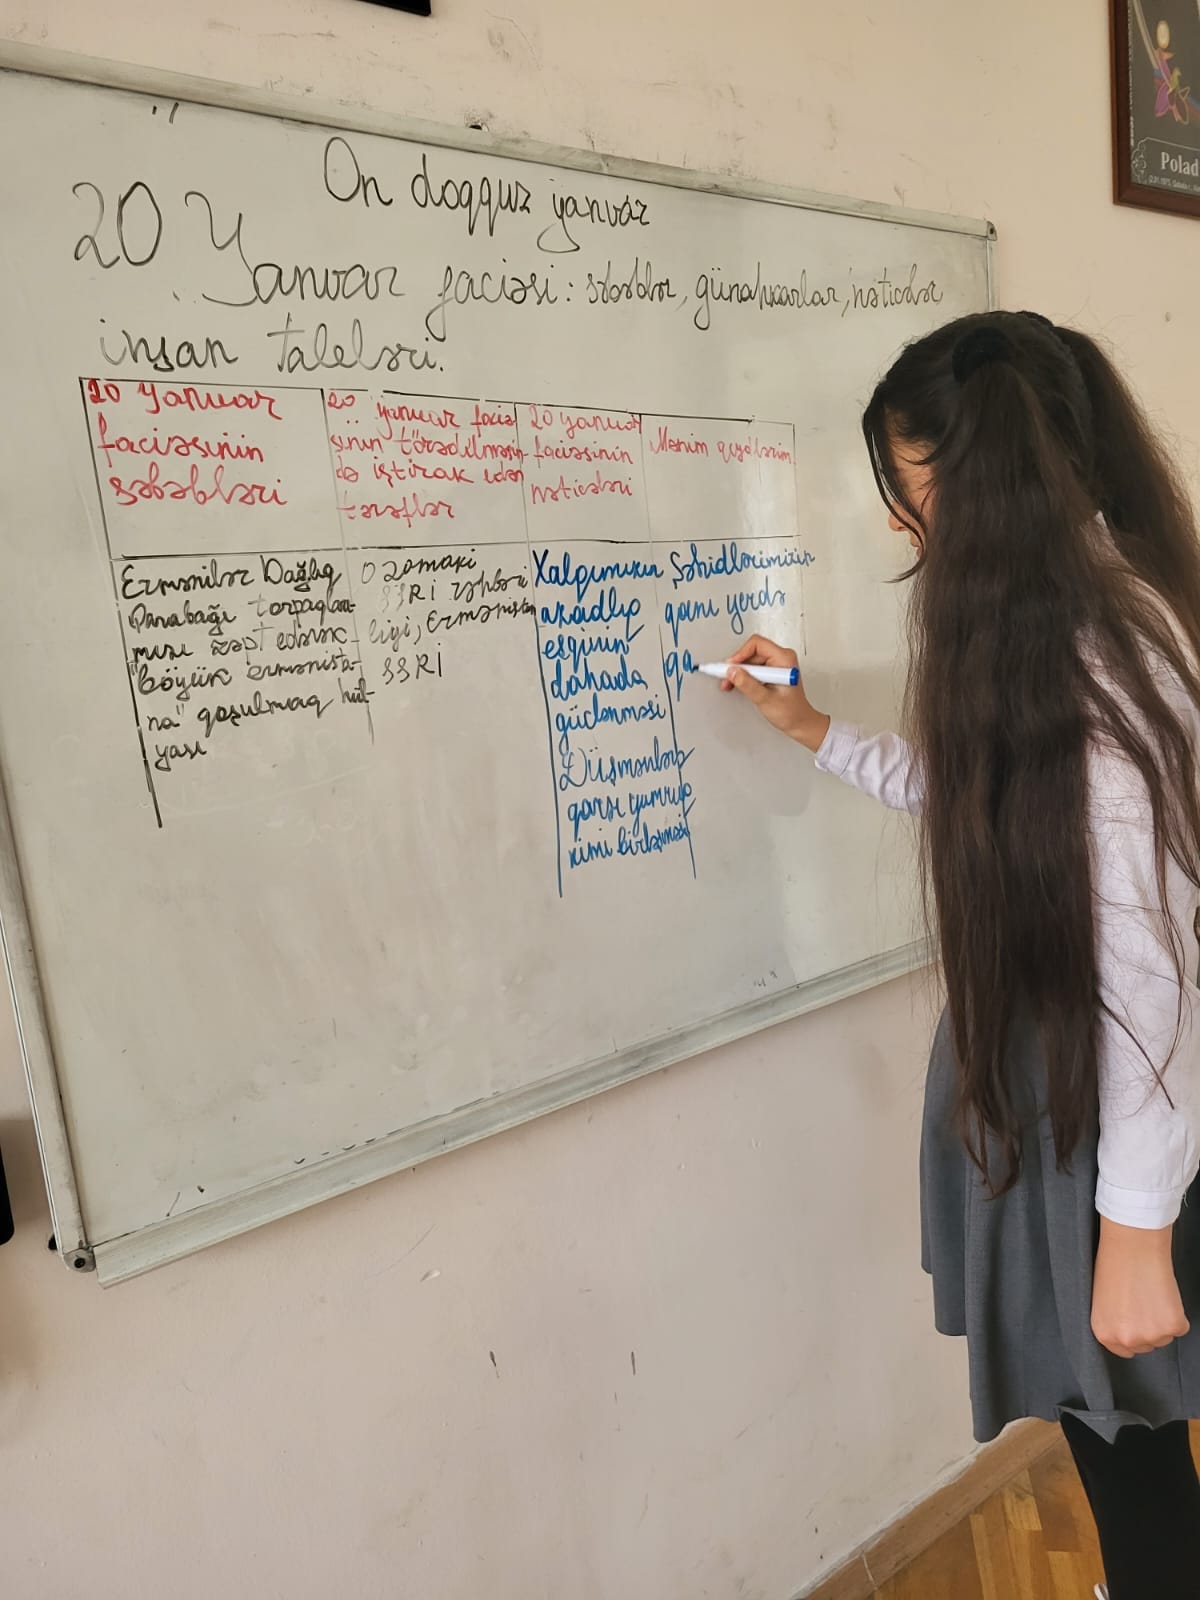 On doqquz yanvar
20 Y
Yanvar faciəsi: səbəblər, günahkarlar, nəticələr
insan taleləri.
20 Yanvar
faciəsinin
səbəbləri
20 yanvar faciə
sinin törədilməsin-
də iştirak edən
tərəflər
20 yanvar
faciəsinin
nəticələri
Mənim qeydlərim
Ermənilər Dağlıq
Qarabağı torpaqları-
mızı zəbt edərək
"böyük ermənista-
na" qoşulmaq hül-
yası
O zamakı
SSRİ rəhbər
liyi, Ermənistan
SSRİ
Xalqımızın
azadlıq
eşqinin
dahada
güclənməsi
Düşmənlərə
qarşı yumruq
kimi birləşməsi
Şəhidlərimizin
qanı yerdə
qa
Polad